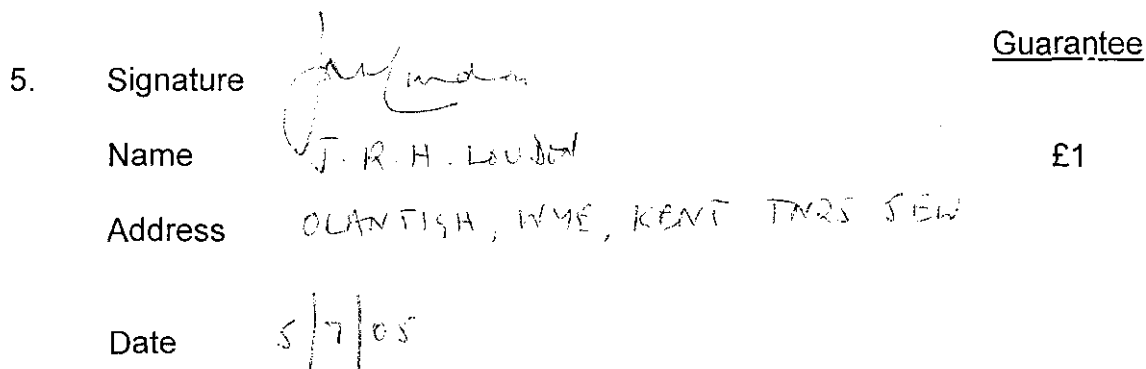 Guarantee
5. Signature
Name J. R. H. LOUDON £1
Address OLANTIGH, WYE, KENT TN25 5EW
Date 5/7/05